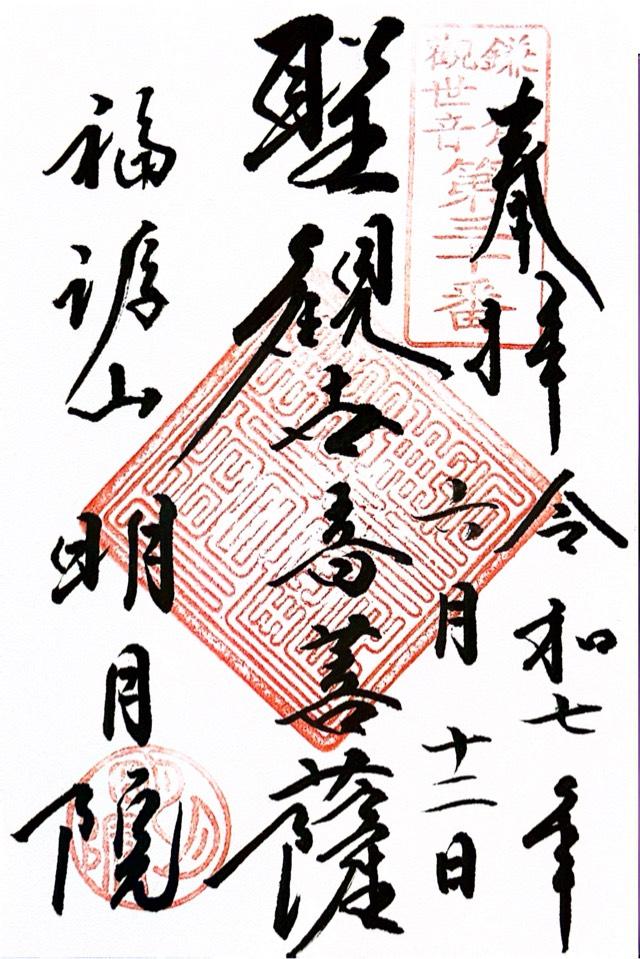 奉拝
令和七年
六月十二日
鎌倉
觀世音
第三十番
聖観世音菩薩
福源山
明月院